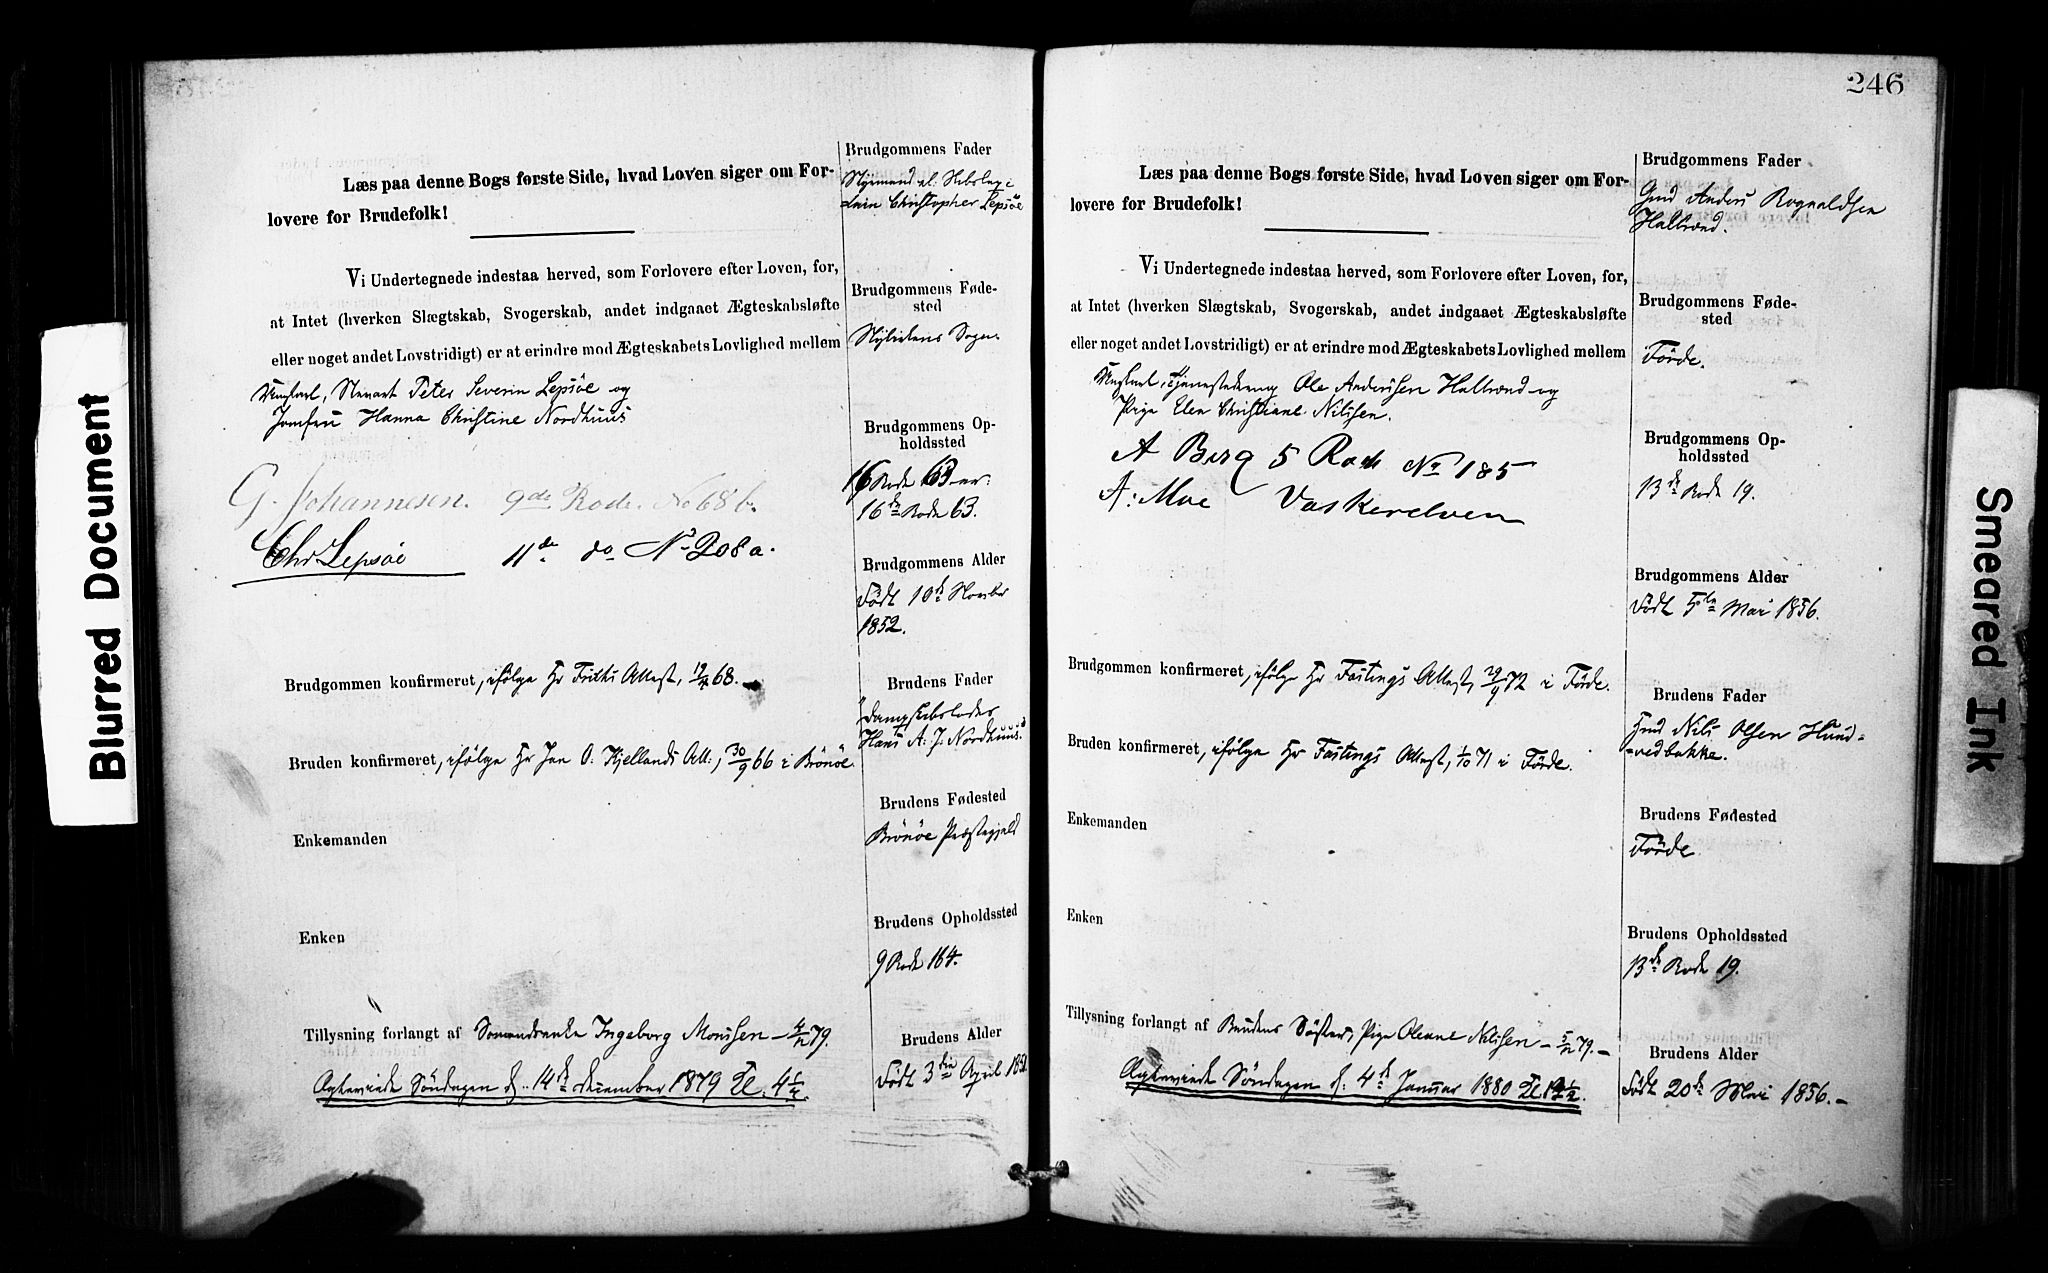 Blurred Document
Læs paa denne Bogs første Side, hvad Loven siger om For-
lovere for Brudefolk!
Vi Undertegnede indestaa herved, som Forlovere efter Loven, for,
at Intet (hverken Slægtskab, Svogerskab, andet indgaaet Ægteskabsløfte
eller noget andet Lovstridigt) er at erindre mod Ægteskabets Lovlighed mellem
Ungkarl, Peter Severin Lepsöe og
Jomfru Hanna Christine Nordhuus
G. Johannesen. 9de Rode. No 68 b.
Chr Lepsöe 11te do No 208 a.
Brudgommen konfirmeret, ifölge Hr Attest, 68.
Bruden konfirmeret, ifölge Hr Jan O. Kjellands Att:, 30/9 66 i Brönöe
Enkemanden
Enken
Tillysning forlangt af Ingeborg Monssen - 79.
Agtevviede Söndagen d. 14de december 1879 Kl. 4 1/2.
Brudgommens Fader
Christopher Lepsöe
Brudgommens Føde-
sted
Sogn.
Brudgommens Op-
holdssted
16 Rode 63
16de Rode 63.
Brudgommens Alder
Födt 10de November
1852.
Brudens Fader
Hans A. J. Nordhuus.
Brudens Fødested
Brönöe Præstegjeld
Brudens Opholdssted
9 Rode 164.
Brudens Alder
Födt 3die April
246
Læs paa denne Bogs første Side, hvad Loven siger om For-
lovere for Brudefolk!
Vi Undertegnede indestaa herved, som Forlovere efter Loven, for,
at Intet (hverken Slægtskab, Svogerskab, andet indgaaet Ægteskabsløfte
eller noget andet Lovstridigt) er at erindre mod Ægteskabets Lovlighed mellem
Ungkarl, Tjenestedreng Ole Anderssen Halbrend og
Pige Elen Christiane Nilssen.
A Berg 5 Rode No 185
A: Moe Vaskerelven
Brudgommen konfirmeret, ifölge Hr Fastings Attest, 29/9 72 i Förde.
Bruden konfirmeret, ifölge Hr Fastings Attest, 1/10 71 i Förde.
Enkemanden
Enken
Tillysning forlangt af Brudens Söster, Pige Oleane Nilssen - 5/12 79. -
Söndagen d. 4de Januar 1880
Brudgommens Fader
Gmd Anders Rognaldsen
Halbrend.
Brudgommens Føde-
sted
Förde.
Brudgommens Op-
holdssted
13de Rode 19.
Brudgommens Alder
Födt 5te Mai 1856.
Brudens Fader
Hmd Nils Olsen Hund-
-vedbakke.
Brudens Fødested
Förde
Brudens Opholdssted
13de Rode 19.
Brudens Alder
Födt 20de Mai 1856. -
Smeared Ink